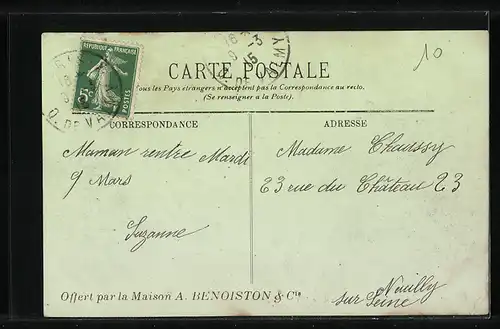 10
RÉPUBLIQUE FRANÇAISE
5c
POSTES
CARTE POSTALE
Tous les Pays étrangers n'acceptent pas la Correspondance au recto.
(Se renseigner à la Poste).
CORRESPONDANCE
ADRESSE
Maman rentre Mardi
9 Mars
Suzanne
Madame Chaussy
23 rue du Château 23
Neuilly
sur Seine
Offert par la Maison A. BENOISTON & Cie